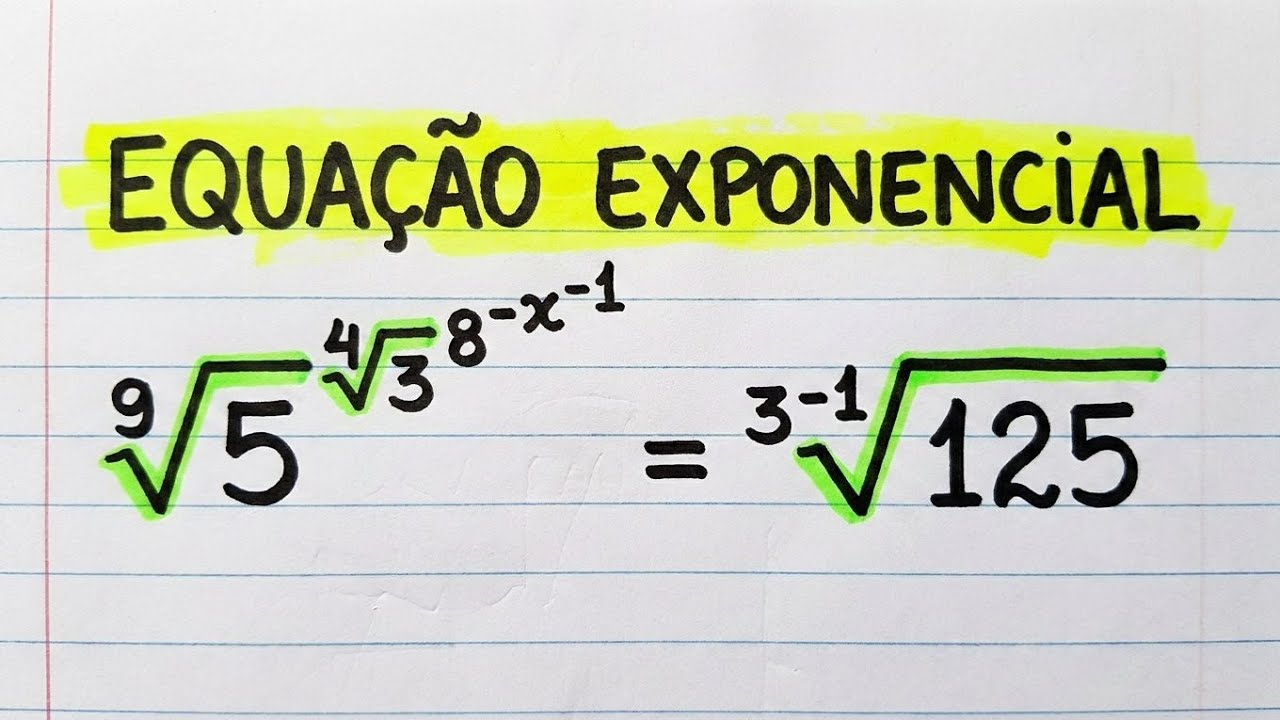 EQUAÇÃO EXPONENCIAL
⁹√5^(⁴√3^(8^(-x^(-1)))) = ³^(-1)√125